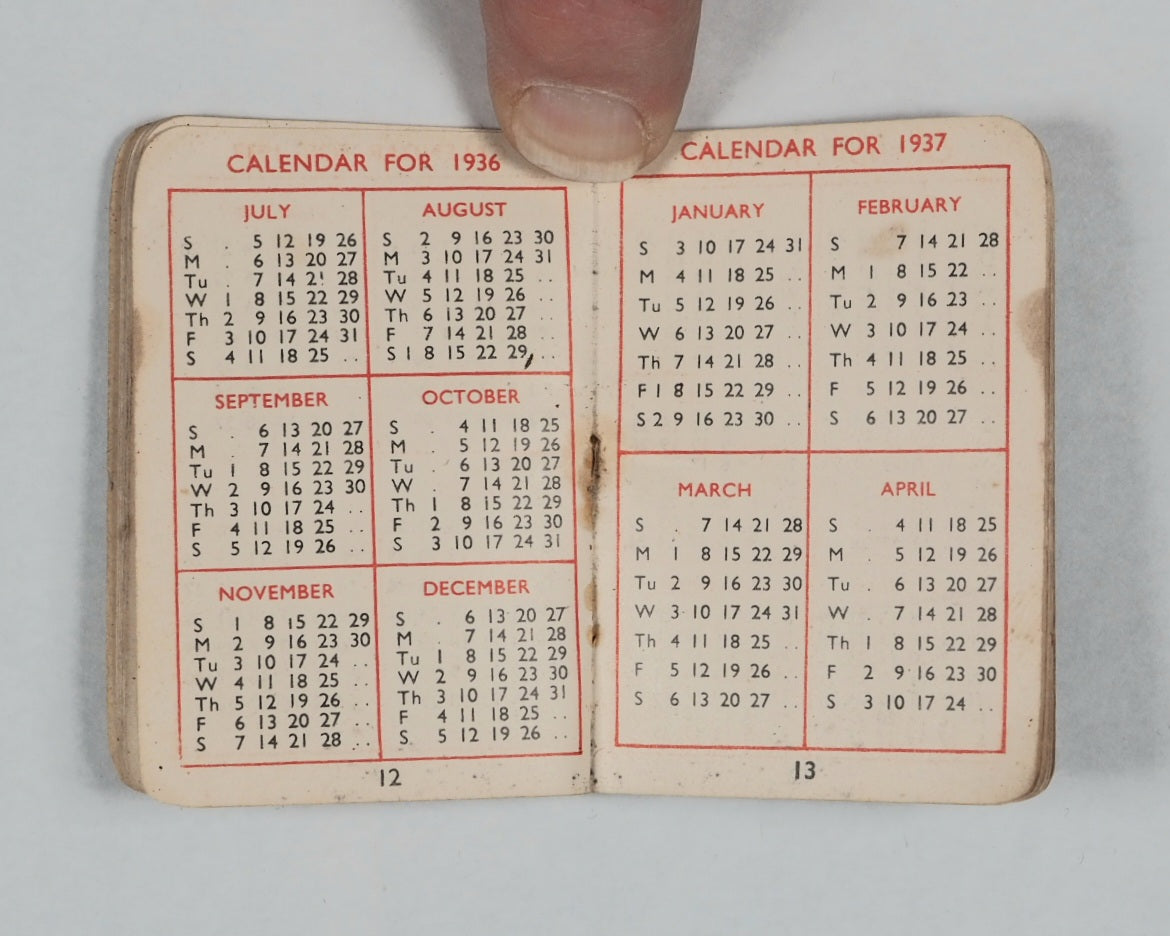 CALENDAR FOR 1936
JULY
S . 5 12 19 26
M . 6 13 20 27
Tu . 7 14 21 28
W 1 8 15 22 29
Th 2 9 16 23 30
F 3 10 17 24 31
S 4 11 18 25 . .
AUGUST
S 2 9 16 23 30
M 3 10 17 24 31
Tu 4 11 18 25 . .
W 5 12 19 26 . .
Th 6 13 20 27 . .
F 7 14 21 28 . .
S 1 8 15 22 29 . .
SEPTEMBER
S . 6 13 20 27
M . 7 14 21 28
Tu 1 8 15 22 29
W 2 9 16 23 30
Th 3 10 17 24 . .
F 4 11 18 25 . .
S 5 12 19 26 . .
OCTOBER
S . 4 11 18 25
M . 5 12 19 26
Tu . 6 13 20 27
W . 7 14 21 28
Th 1 8 15 22 29
F 2 9 16 23 30
S 3 10 17 24 31
NOVEMBER
S 1 8 15 22 29
M 2 9 16 23 30
Tu 3 10 17 24 . .
W 4 11 18 25 . .
Th 5 12 19 26 . .
F 6 13 20 27 . .
S 7 14 21 28 . .
DECEMBER
S . 6 13 20 27
M . 7 14 21 28
Tu 1 8 15 22 29
W 2 9 16 23 30
Th 3 10 17 24 31
F 4 11 18 25 . .
S 5 12 19 26 . .
12
CALENDAR FOR 1937
JANUARY
S 3 10 17 24 31
M 4 11 18 25 . .
Tu 5 12 19 26 . .
W 6 13 20 27 . .
Th 7 14 21 28 . .
F 1 8 15 22 29 . .
S 2 9 16 23 30 . .
FEBRUARY
S 7 14 21 28
M 1 8 15 22 . .
Tu 2 9 16 23 . .
W 3 10 17 24 . .
Th 4 11 18 25 . .
F 5 12 19 26 . .
S 6 13 20 27 . .
MARCH
S . 7 14 21 28
M 1 8 15 22 29
Tu 2 9 16 23 30
W 3 10 17 24 31
Th 4 11 18 25 . .
F 5 12 19 26 . .
S 6 13 20 27 . .
APRIL
S . 4 11 18 25
M . 5 12 19 26
Tu . 6 13 20 27
W . 7 14 21 28
Th 1 8 15 22 29
F 2 9 16 23 30
S 3 10 17 24 . .
13